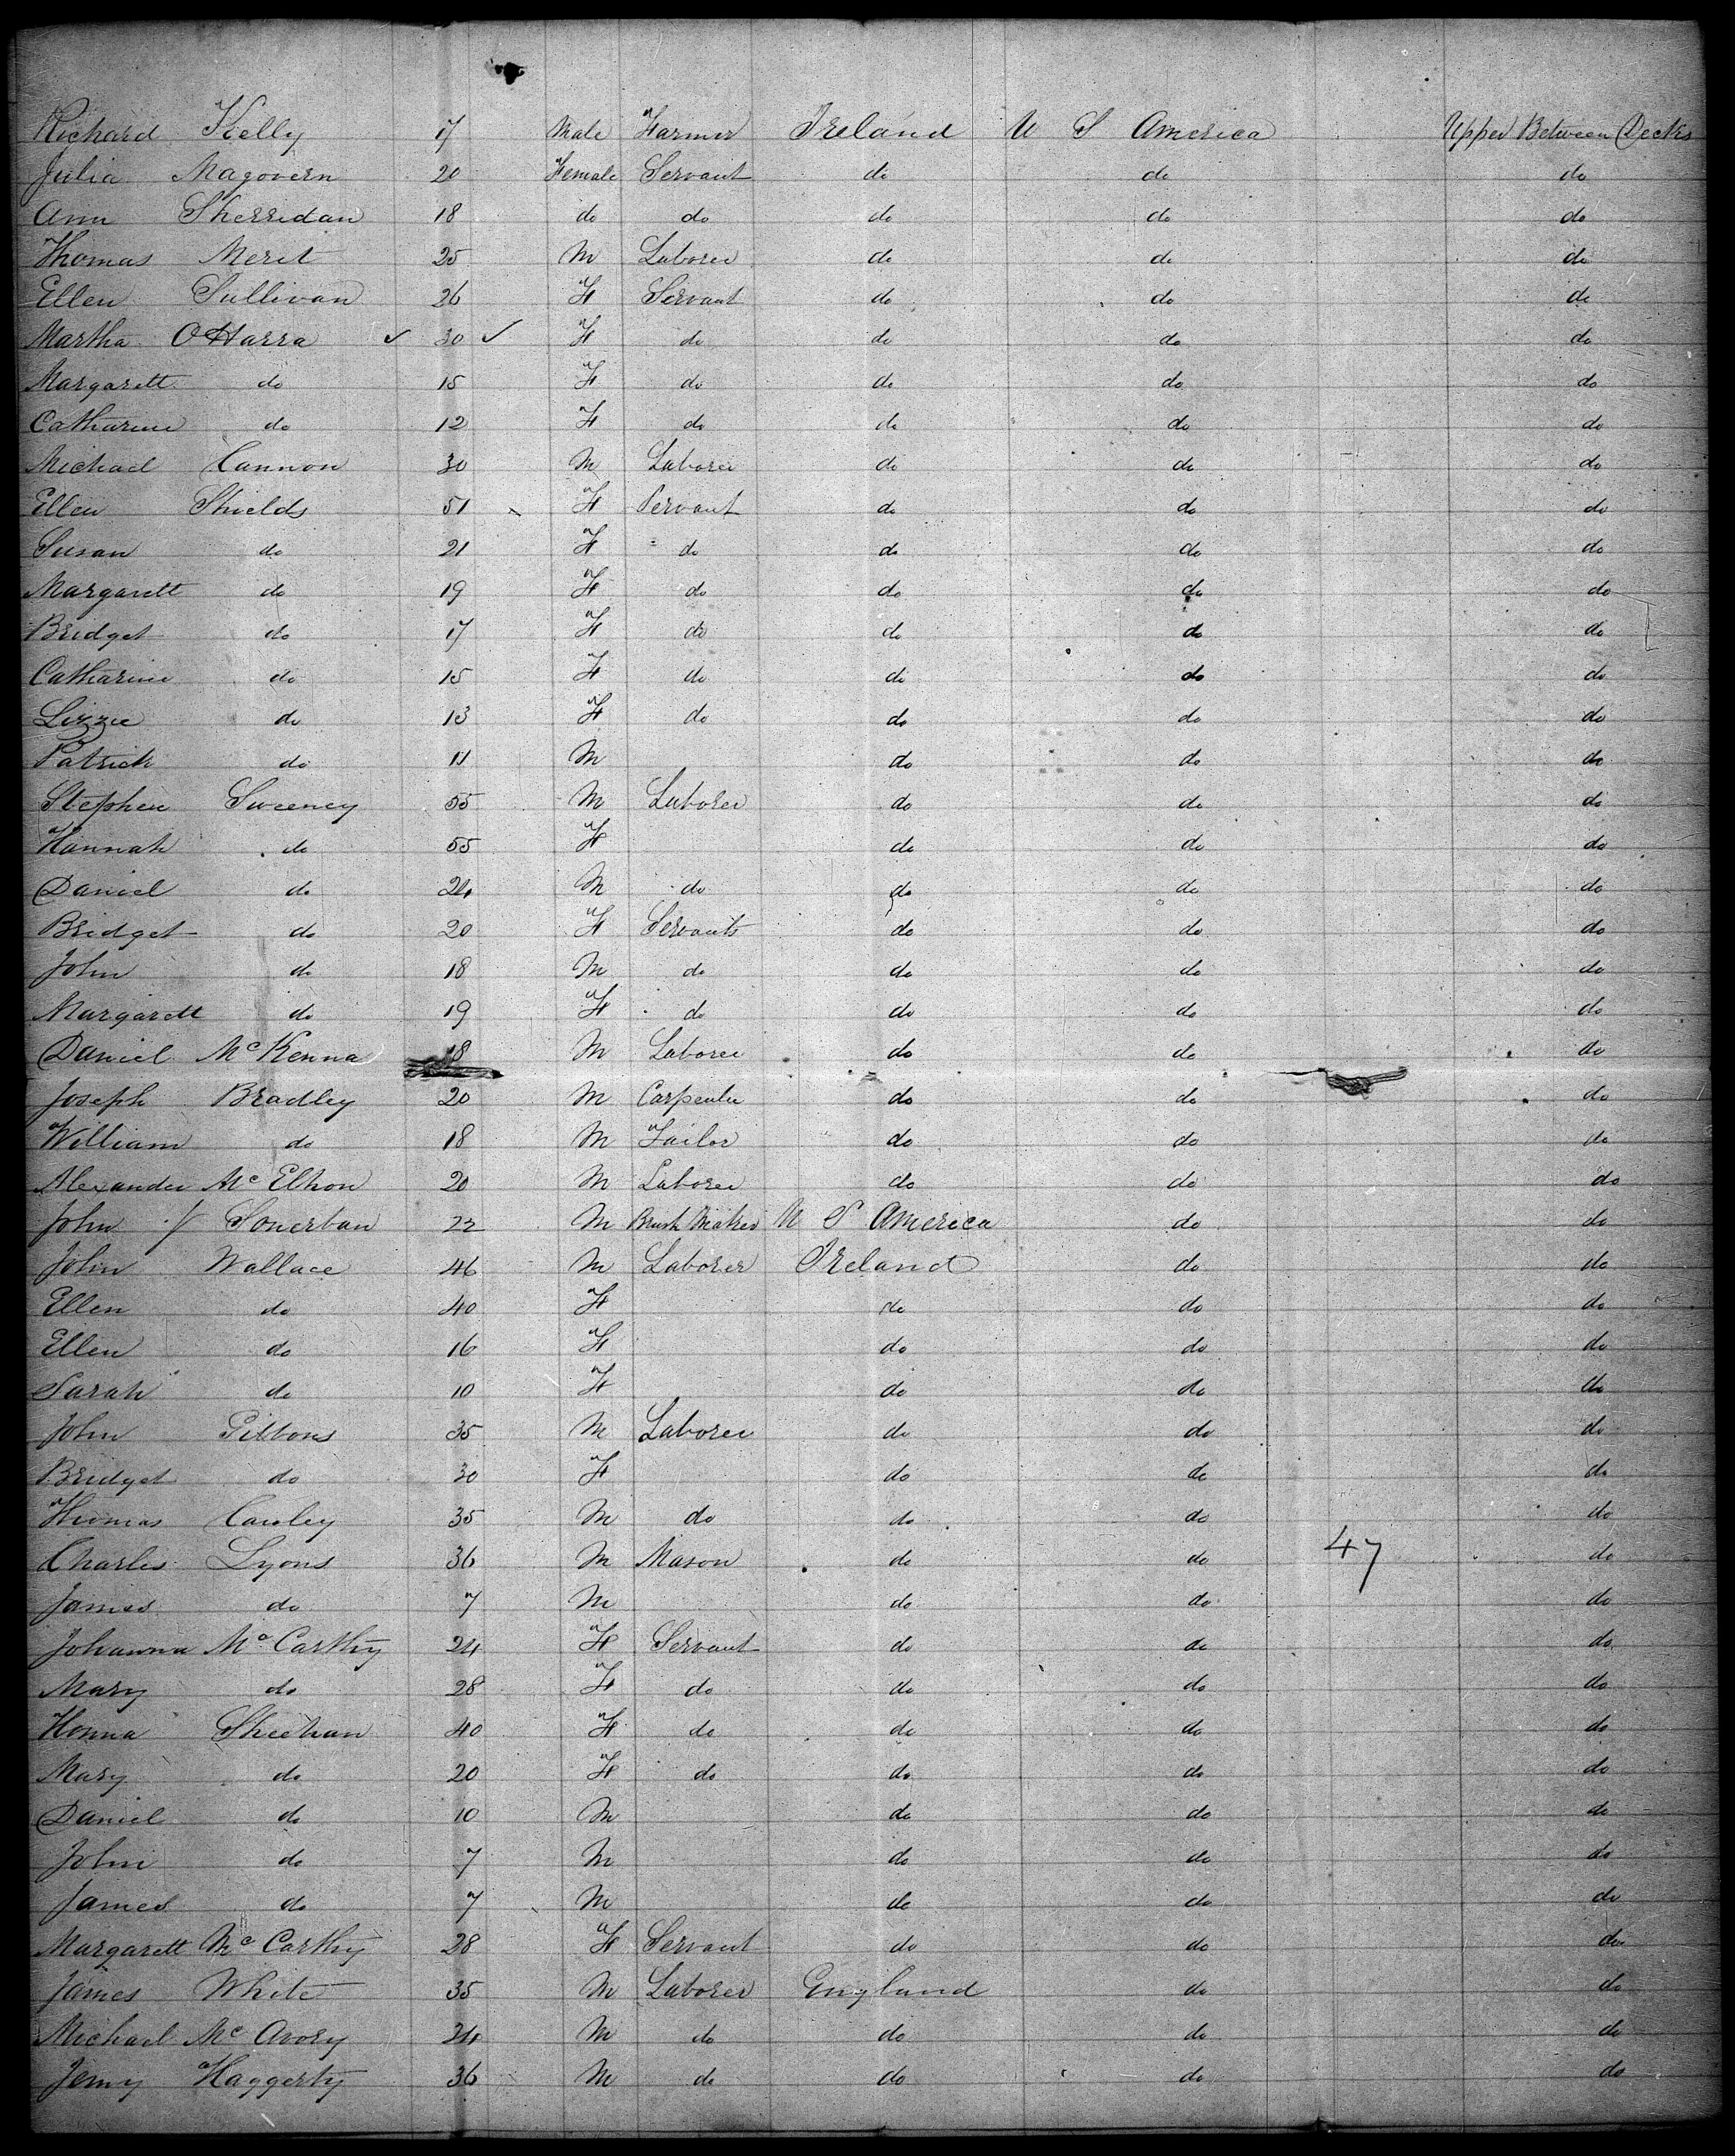 Richard Kelly 17 Male Farmer Ireland U S America Upper Between Decks
Julia Magovern 20 Female Servant do do do
Ann Sherridan 18 do do do do do
Thomas Merit 25 M Laborer do do do
Ellen Sullivan 26 F Servant do do do
Martha OHarra ✓ 30 ✓ F do do do do
Margarett do 15 F do do do do
Catharine do 12 F do do do do
Michael Cannon 30 M Laborer do do do
Ellen Shields 51 F Servant do do do
Susan do 21 F do do do do
Margarett do 19 F do do do do
Bridget do 17 F do do do do
Catharine do 15 F do do do do
Lizzie do 13 F do do do do
Patrick do 11 M do do do
Stephen Sweeney 55 M Laborer do do do
Hannah do 55 F do do do
Daniel do 24 M do do do do
Bridget do 20 F Servants do do do
John do 18 M do do do do
Margarett do 19 F do do do do
Daniel McKenna 18 M Laborer do do do
Joseph Bradley 20 M Carpenter do do do
William do 18 M Tailor do do do
Alexander McElhon 20 M Laborer do do do
John f Sonerban 22 M Brush Maker U S America do do
John Wallace 46 M Laborer Ireland do do
Ellen do 40 F do do do
Ellen do 16 F do do do
Sarah do 10 F do do do
John Gibbons 35 M Laborer do do do
Bridget do 30 F do do do
Thomas Cauley 35 M do do do do
Charles Lyons 36 M Mason do do 47 do
James do 7 M do do do
Johanna McCarthy 24 F Servant do do do
Mary do 28 F do do do do
Honna Sheehan 40 F do do do do
Mary do 20 F do do do do
Daniel do 10 M do do do
John do 7 M do do do
James do 7 M do do do
Margarett McCarthy 28 F Servant do do do
James White 35 M Laborer England do do
Michael McAvory 24 M do do do do
Jemy Haggerty 36 M do do do do